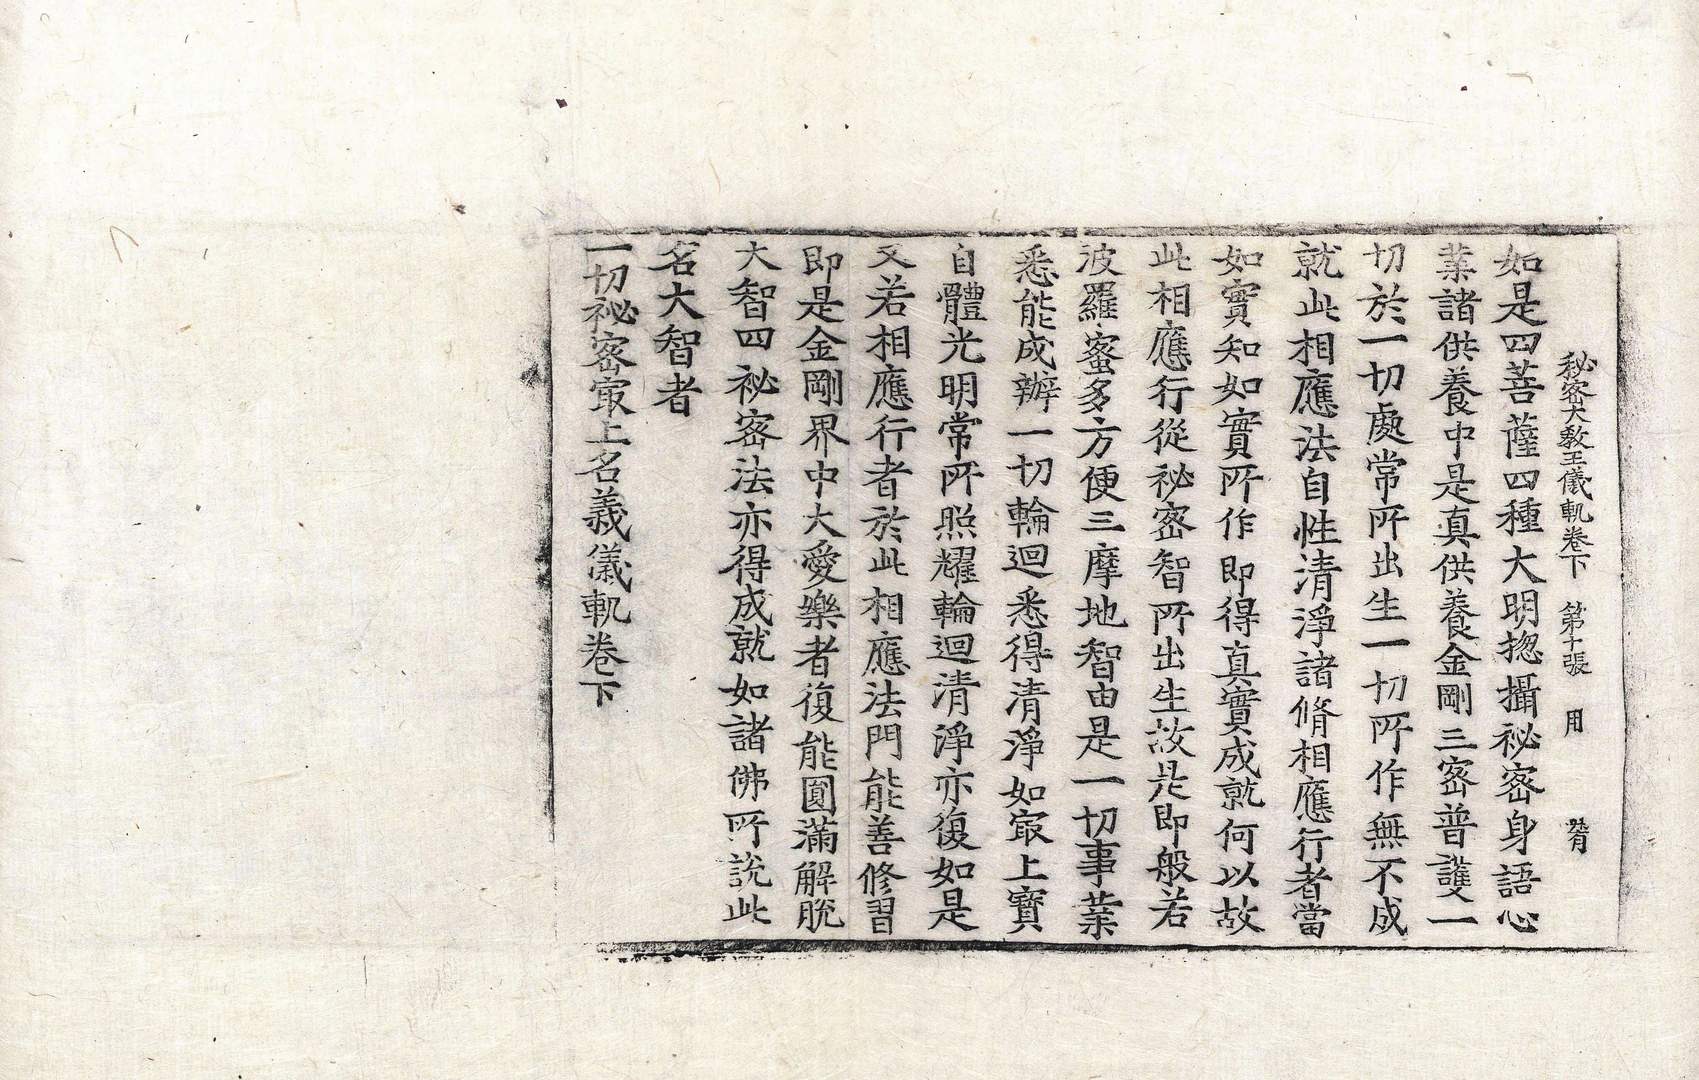 秘密大敎王儀軌卷下 第十張 用
如是四菩薩四種大明揔攝祕密身語心
業諸供養中是真供養金剛三密普護一
切於一切處常所出生一切所作無不成
就此相應法自性清淨諸脩相應行者當
如實知如實所作即得真實成就何以故
此相應行從祕密智所出生故是即般若
波羅蜜多方便三摩地智由是一切事業
悉能成辦一切輪迴悉得清淨如㝡上寶
自體光明常所照耀輪迴清淨亦復如是
又若相應行者於此相應法門能善修習
即是金剛界中大愛樂者復能圓滿解脫
大智四祕密法亦得成就如諸佛所說此
名大智者
一切祕密㝡上名義儀軌卷下